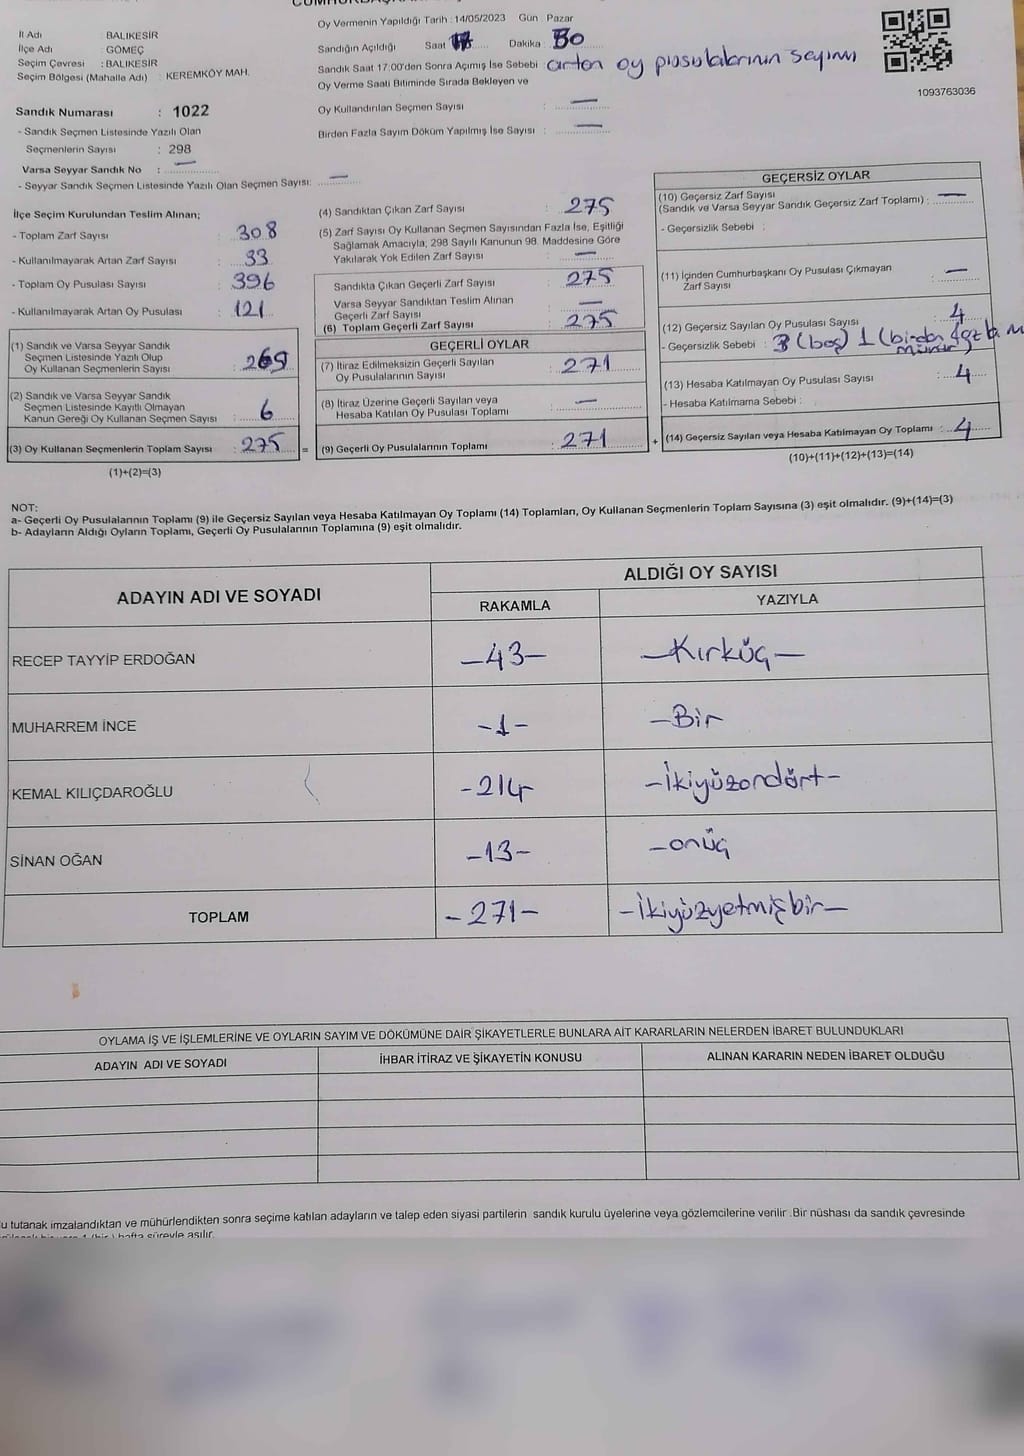 İl Adı : BALIKESİR
İlçe Adı : GÖMEÇ
Seçim Çevresi : BALIKESİR
Seçim Bölgesi (Mahalle Adı) : KEREMKÖY MAH.
Sandık Numarası : 1022
- Sandık Seçmen Listesinde Yazılı Olan
Seçmenlerin Sayısı : 298
Varsa Seyyar Sandık No : —
- Seyyar Sandık Seçmen Listesinde Yazılı Olan Seçmen Sayısı: —
Oy Vermenin Yapıldığı Tarih : 14/05/2023 Gün Pazar
Sandığın Açıldığı Saat Dakika 30
Sandık Saat 17:00'den Sonra Açımış İse Sebebi : artan oy pusulalarının sayımı
Oy Verme Saati Bitiminde Sırada Bekleyen ve
Oy Kullandırılan Seçmen Sayısı : —
Birden Fazla Sayım Döküm Yapılmış İse Sayısı : —
1093763036
İlçe Seçim Kurulundan Teslim Alınan;
- Toplam Zarf Sayısı : 308
- Kullanılmayarak Artan Zarf Sayısı : 33
- Toplam Oy Pusulası Sayısı : 396
- Kullanılmayarak Artan Oy Pusulası : 121
(1) Sandık ve Varsa Seyyar Sandık
Seçmen Listesinde Yazılı Olup
Oy Kullanan Seçmenlerin Sayısı : 269
(2) Sandık ve Varsa Seyyar Sandık
Seçmen Listesinde Kayıtlı Olmayan
Kanun Gereği Oy Kullanan Seçmen Sayısı : 6
(3) Oy Kullanan Seçmenlerin Toplam Sayısı : 275 =
(1)+(2)=(3)
(4) Sandıktan Çıkan Zarf Sayısı : 275
(5) Zarf Sayısı Oy Kullanan Seçmen Sayısından Fazla İse, Eşitliği
Sağlamak Amacıyla, 298 Sayılı Kanunun 98. Maddesine Göre
Yakılarak Yok Edilen Zarf Sayısı : —
Sandıkta Çıkan Geçerli Zarf Sayısı : 275
Varsa Seyyar Sandıktan Teslim Alınan
Geçerli Zarf Sayısı : —
(6) Toplam Geçerli Zarf Sayısı : 275
GEÇERLİ OYLAR
(7) İtiraz Edilmeksizin Geçerli Sayılan
Oy Pusulalarının Sayısı : 271
(8) İtiraz Üzerine Geçerli Sayılan veya
Hesaba Katılan Oy Pusulası Toplamı : —
(9) Geçerli Oy Pusulalarının Toplamı : 271 +
GEÇERSİZ OYLAR
(10) Geçersiz Zarf Sayısı
(Sandık ve Varsa Seyyar Sandık Geçersiz Zarf Toplamı) : —
- Geçersizlik Sebebi :
(11) İçinden Cumhurbaşkanı Oy Pusulası Çıkmayan
Zarf Sayısı : —
(12) Geçersiz Sayılan Oy Pusulası Sayısı : 4
- Geçersizlik Sebebi : 3 (boş) 1 (birden
(13) Hesaba Katılmayan Oy Pusulası Sayısı : 4
- Hesaba Katılmama Sebebi :
(14) Geçersiz Sayılan veya Hesaba Katılmayan Oy Toplamı : 4
(10)+(11)+(12)+(13)=(14)
NOT:
a- Geçerli Oy Pusulalarının Toplamı (9) ile Geçersiz Sayılan veya Hesaba Katılmayan Oy Toplamı (14) Toplamları, Oy Kullanan Seçmenlerin Toplam Sayısına (3) eşit olmalıdır. (9)+(14)=(3)
b- Adayların Aldığı Oyların Toplamı, Geçerli Oy Pusulalarının Toplamına (9) eşit olmalıdır.
ADAYIN ADI VE SOYADI
ALDIĞI OY SAYISI
RAKAMLA YAZIYLA
RECEP TAYYİP ERDOĞAN -43- -Kırküç-
MUHARREM İNCE -1- -Bir
KEMAL KILIÇDAROĞLU -214 -İkiyüzondört-
SİNAN OĞAN -13- -onüç
TOPLAM -271- -İkiyüzyetmişbir-
OYLAMA İŞ VE İŞLEMLERİNE VE OYLARIN SAYIM VE DÖKÜMÜNE DAİR ŞİKAYETLERLE BUNLARA AİT KARARLARIN NELERDEN İBARET BULUNDUKLARI
ADAYIN ADI VE SOYADI İHBAR İTİRAZ VE ŞİKAYETİN KONUSU ALINAN KARARIN NEDEN İBARET OLDUĞU
u tutanak imzalandıktan ve mühürlendikten sonra seçime katılan adayların ve talep eden siyasi partilerin sandık kurulu üyelerine veya gözlemcilerine verilir .Bir nüshası da sandık çevresinde
(bir ) hafta süreyle asılır.